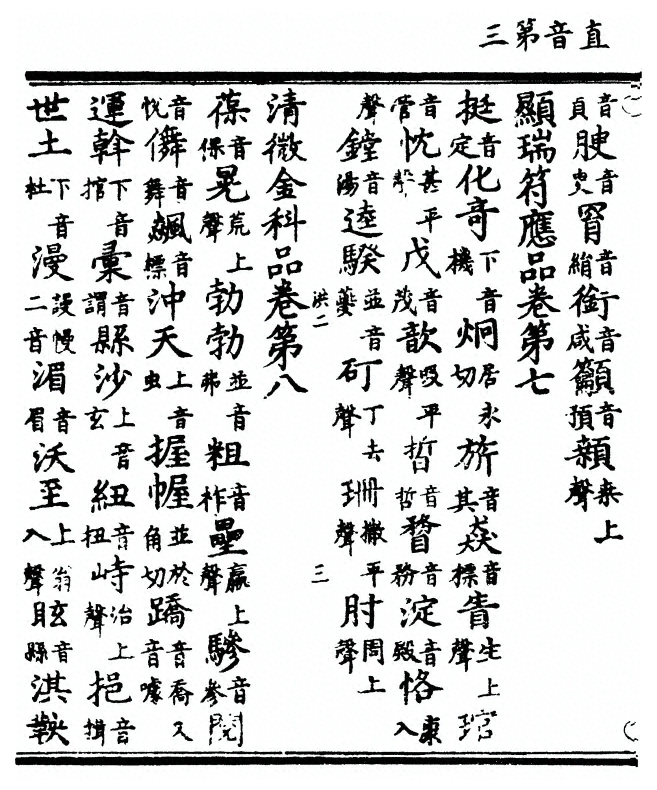 直音第三
音頁腴音臾罥音絹銜音咸籲音預穎聲上
顯瑞符應品卷第七
挺音定化奇下音機炯居永切旂音其焱音標眚生上聲琯
音管忱甚平聲戊音茂歆吸平聲晢音哲瞀音務淀音殿恪入
聲鏜音湯逵騤並音夔矴丁去聲珊撒平聲肘周上聲
洪二 三
清微金科品卷第八
葆音保晃荒上聲勃勃並音弗粗音祚壘羸上聲驂音參閱
音悅儛音舞飆音標沖天上音虫握幄並於角切蹻音喬又音噱
運斡下音捾彙音謂縣沙上音玄紐音扭峙治上聲挹音揖
世土下音杜漫謾慢二音湄音眉沃至上翁入聲眩音縣淇鞅